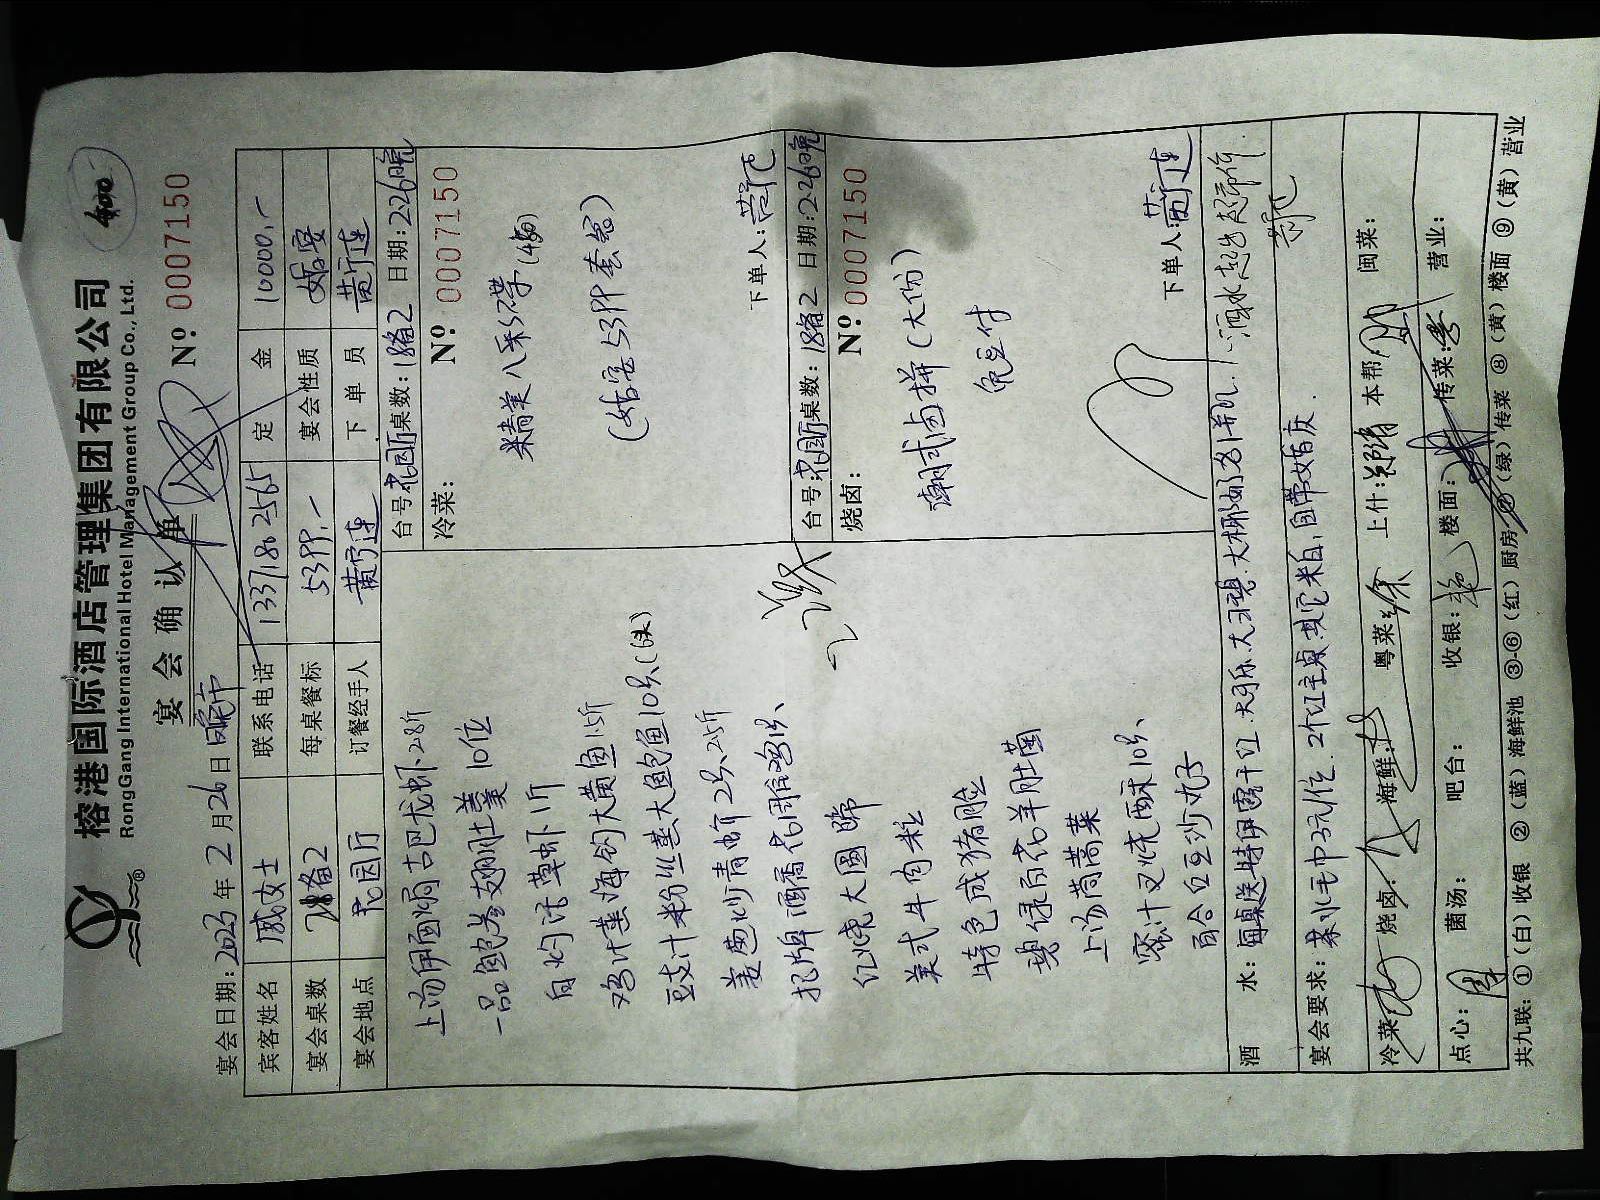 榕港国际酒店管理集团有限公司
RongGang International Hotel Management Group Co., Ltd.
宴会确认单
№ 0007150
宴会日期: 2023年2月26日 晚市
宾客姓名 戚女士 联系电话 133 1186 2565 定金 10000.-
宴会桌数 18备2 每桌餐标 5399.- 宴会性质 婚宴
宴会地点 花园厅 订餐经手人 黄宁连 下单员 黄宁连
上汤伊面焗古巴龙虾2.8斤
一品鲍参翅肚羹10位
白灼活草虾1斤
鸡汁蒸海钓大黄鱼1.5斤
豉汁粉丝蒸大鲍鱼10只(6头)
姜葱炒青蟹2只2.5斤
招牌酒香花雕鸡1只
红烧大圆蹄
美式牛肉粒
特色咸猪脸
碧绿百花羊肚菌
上汤茼蒿菜
蜜汁叉烧酥10只
百合豆沙丸子
台号: 花园厅 桌数: 18备2 日期: 2.26晚
冷菜: № 0007150
精美八彩碟
(婚宴5399套餐)
下单人:
台号: 花园厅 桌数: 18备2 日期: 2.26晚
烧卤: № 0007150
潮式卤拼(大份)
兔豆付
下单人: 黄宁连
酒水: 每桌送特伊露干红、大可乐、大雪碧、大椰奶各1瓶
宴会要求: 茶水毛巾2元/位
冷菜: 烧卤: 海鲜: 粤菜: 徐 上什: 本帮: 闽菜:
点心: 周 菌汤: 吧台: 收银: 楼面: 传菜: 营业:
共九联: ①(白)收银 ②(蓝)海鲜池 ③-⑥(红)厨房 ⑦(绿)传菜 ⑧(黄)楼面 ⑨(黄)营业